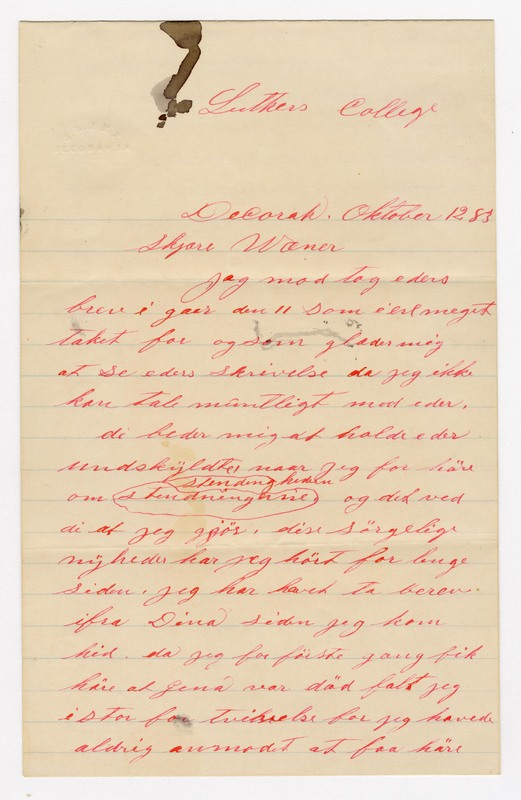 Luthers College
Decorah. Oktober 12 83
skjære Wæner
jeg mod tog eders
brev i gaar den 11 som i er meget
taket for og som glader mig
at se eders skrivelse da jeg ikke
kan tale mundtligt med eder.
di beder mig at holde eder
undskÿldte naar jeg for häre
stendengheden
om stendningerne og det ved
di at jeg gjös. dise sörgelige
nÿheder har jeg hört for lenge
siden. jeg har havet to brev
ifra Dina siden jeg kom
hid. da jeg for förste gang fik
häre at Jena var död falt jeg
i stor for tvivelse for jeg havede
aldrig anmodet at faa häre